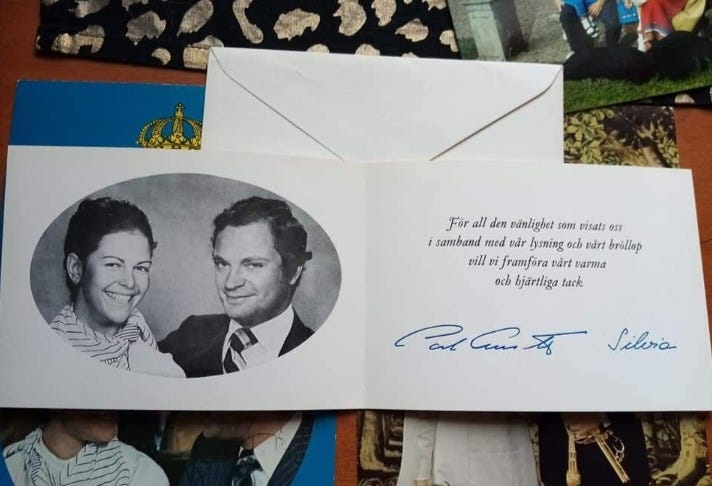 För all den vänlighet som visats oss
i samband med vår lysning och vårt bröllop
vill vi framföra vårt varma
och hjärtliga tack
Carl Gustaf Silvia